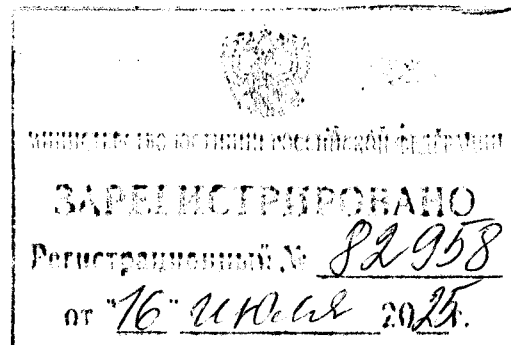 МИНИСТЕРСТВО ЮСТИЦИИ РОССИЙСКОЙ ФЕДЕРАЦИИ
ЗАРЕГИСТРИРОВАНО
Регистрационный № 82958
от "16" июля 2025г.